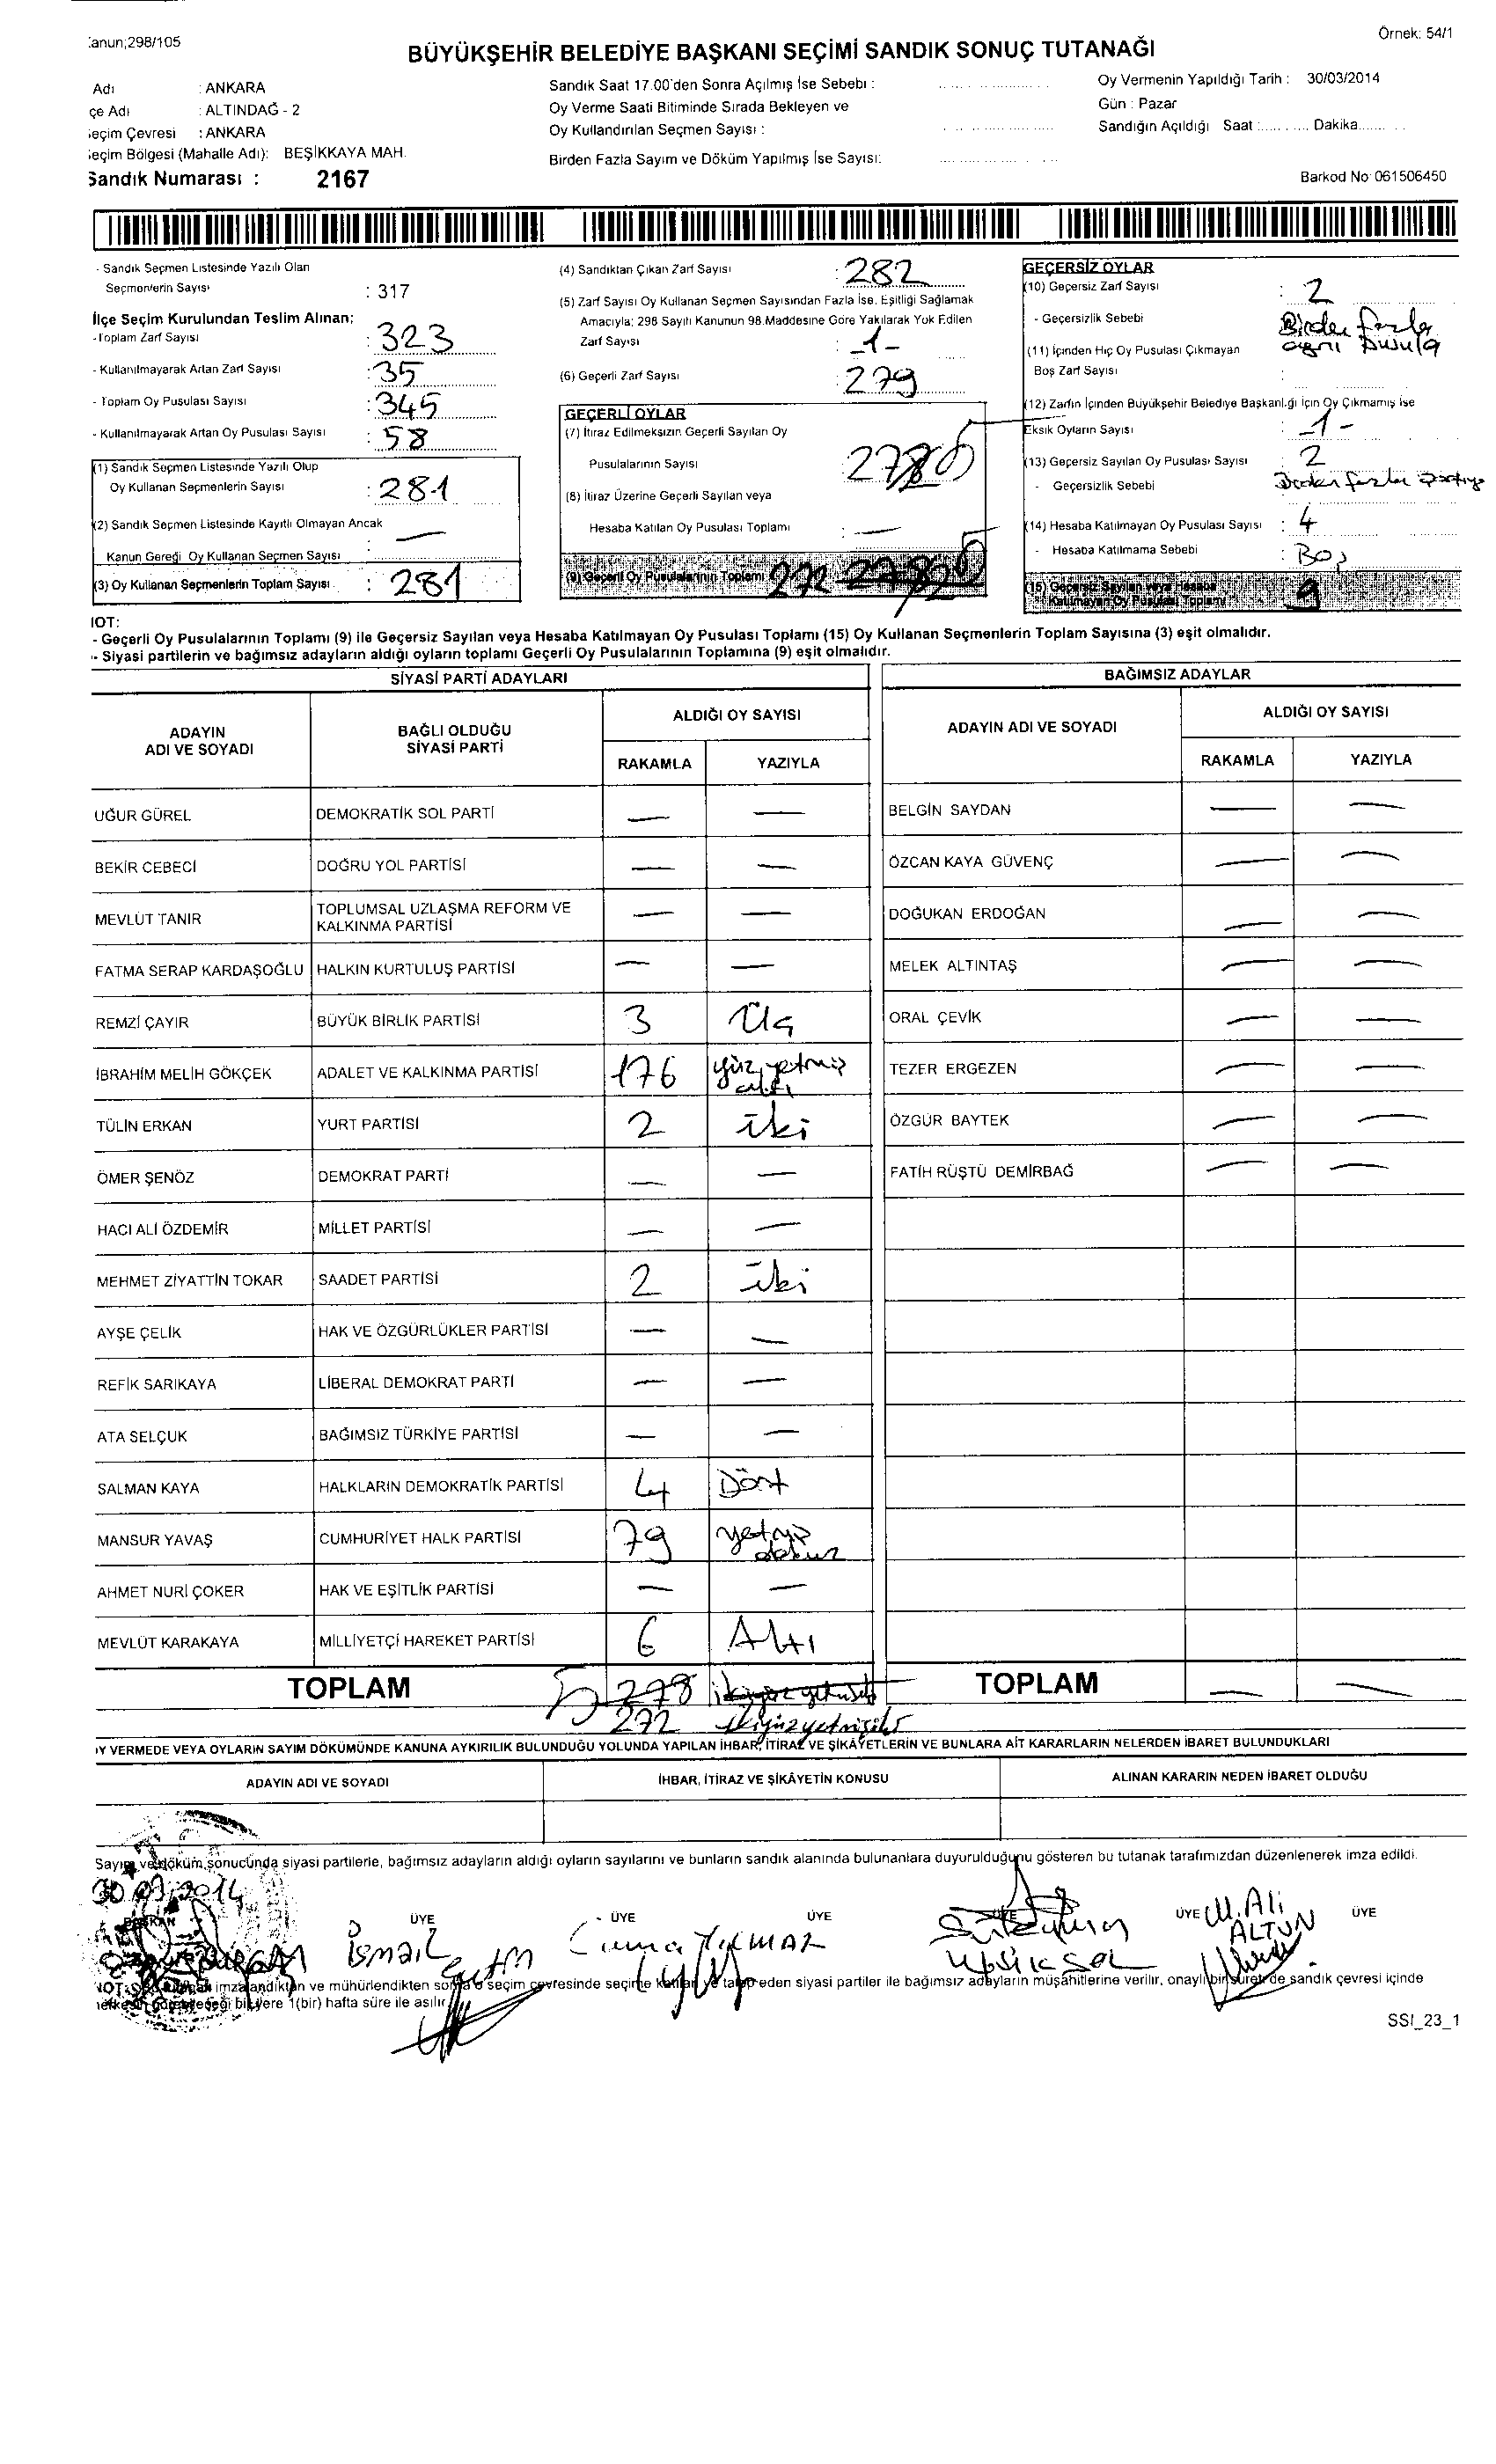 :anun;298/105
Örnek: 54/1
BÜYÜKŞEHİR BELEDİYE BAŞKANI SEÇİMİ SANDIK SONUÇ TUTANAĞI
Adı : ANKARA
çe Adı : ALTINDAĞ - 2
eçim Çevresi : ANKARA
eçim Bölgesi (Mahalle Adı): BEŞİKKAYA MAH.
Sandık Numarası : 2167
Sandık Saat 17.00'den Sonra Açılmış İse Sebebi :
Oy Verme Saati Bitiminde Sırada Bekleyen ve
Oy Kullandırılan Seçmen Sayısı :
Birden Fazla Sayım ve Döküm Yapılmış İse Sayısı:
Oy Vermenin Yapıldığı Tarih : 30/03/2014
Gün : Pazar
Sandığın Açıldığı Saat :.......... Dakika.........
Barkod No: 061506450
- Sandık Seçmen Listesinde Yazılı Olan
Seçmenlerin Sayısı : 317
İlçe Seçim Kurulundan Teslim Alınan;
-Toplam Zarf Sayısı : 323
- Kullanılmayarak Artan Zarf Sayısı : 35
- Toplam Oy Pusulası Sayısı : 345
- Kullanılmayarak Artan Oy Pusulası Sayısı : 58
(1) Sandık Seçmen Listesinde Yazılı Olup
Oy Kullanan Seçmenlerin Sayısı : 281
(2) Sandık Seçmen Listesinde Kayıtlı Olmayan Ancak
Kanun Gereği Oy Kullanan Seçmen Sayısı : —
(3) Oy Kullanan Seçmenlerin Toplam Sayısı : 281
(4) Sandıktan Çıkan Zarf Sayısı : 282
(5) Zarf Sayısı Oy Kullanan Seçmen Sayısından Fazla İse, Eşitliği Sağlamak
Amacıyla; 298 Sayılı Kanunun 98.Maddesine Göre Yakılarak Yok Edilen
Zarf Sayısı : -1-
(6) Geçerli Zarf Sayısı : 279
GEÇERLİ OYLAR
(7) İtiraz Edilmeksizin Geçerli Sayılan Oy
Pusulalarının Sayısı
(8) İtiraz Üzerine Geçerli Sayılan veya
Hesaba Katılan Oy Pusulası Toplamı : —
(9) Geçerli Oy Pusulalarının Toplamı 272
GEÇERSİZ OYLAR
(10) Geçersiz Zarf Sayısı : 2
- Geçersizlik Sebebi : Birden fazla
aynı pusula
(11) İçinden Hiç Oy Pusulası Çıkmayan
Boş Zarf Sayısı :
(12) Zarfın İçinden Büyükşehir Belediye Başkanlığı İçin Oy Çıkmamış İse
Eksik Oyların Sayısı : -1-
(13) Geçersiz Sayılan Oy Pusulası Sayısı : 2
- Geçersizlik Sebebi Birden fazla partiye
(14) Hesaba Katılmayan Oy Pusulası Sayısı : 4
- Hesaba Katılmama Sebebi : Boş
(15) Geçersiz Sayılan veya Hesaba
Katılmayan Oy Pusulası Toplamı 9
IOT:
- Geçerli Oy Pusulalarının Toplamı (9) ile Geçersiz Sayılan veya Hesaba Katılmayan Oy Pusulası Toplamı (15) Oy Kullanan Seçmenlerin Toplam Sayısına (3) eşit olmalıdır.
- Siyasi partilerin ve bağımsız adayların aldığı oyların toplamı Geçerli Oy Pusulalarının Toplamına (9) eşit olmalıdır.
SİYASİ PARTİ ADAYLARI
BAĞIMSIZ ADAYLAR
ADAYIN ADI VE SOYADI
BAĞLI OLDUĞU SİYASİ PARTİ
ALDIĞI OY SAYISI
RAKAMLA YAZIYLA
ADAYIN ADI VE SOYADI
ALDIĞI OY SAYISI
RAKAMLA YAZIYLA
UĞUR GÜREL DEMOKRATİK SOL PARTİ — — BELGİN SAYDAN — —
BEKİR CEBECİ DOĞRU YOL PARTİSİ — — ÖZCAN KAYA GÜVENÇ — —
MEVLÜT TANIR TOPLUMSAL UZLAŞMA REFORM VE KALKINMA PARTİSİ — — DOĞUKAN ERDOĞAN — —
FATMA SERAP KARDAŞOĞLU HALKIN KURTULUŞ PARTİSİ — — MELEK ALTINTAŞ — —
REMZİ ÇAYIR BÜYÜK BİRLİK PARTİSİ 3 Üç ORAL ÇEVİK — —
İBRAHİM MELİH GÖKÇEK ADALET VE KALKINMA PARTİSİ 176 yüz yetmiş altı TEZER ERGEZEN — —
TÜLİN ERKAN YURT PARTİSİ 2 iki ÖZGÜR BAYTEK — —
ÖMER ŞENÖZ DEMOKRAT PARTİ — — FATİH RÜŞTÜ DEMİRBAĞ — —
HACI ALİ ÖZDEMİR MİLLET PARTİSİ — —
MEHMET ZİYATTİN TOKAR SAADET PARTİSİ 2 iki
AYŞE ÇELİK HAK VE ÖZGÜRLÜKLER PARTİSİ — —
REFİK SARIKAYA LİBERAL DEMOKRAT PARTİ — —
ATA SELÇUK BAĞIMSIZ TÜRKİYE PARTİSİ — —
SALMAN KAYA HALKLARIN DEMOKRATİK PARTİSİ 4 Dört
MANSUR YAVAŞ CUMHURİYET HALK PARTİSİ 79 yetmiş dokuz
AHMET NURİ ÇOKER HAK VE EŞİTLİK PARTİSİ — —
MEVLÜT KARAKAYA MİLLİYETÇİ HAREKET PARTİSİ 6 Altı
TOPLAM 278 TOPLAM — —
272 ikiyüzyetmişiki
IY VERMEDE VEYA OYLARIN SAYIM DÖKÜMÜNDE KANUNA AYKIRILIK BULUNDUĞU YOLUNDA YAPILAN İHBAR, İTİRAZ VE ŞİKÂYETLERİN VE BUNLARA AİT KARARLARIN NELERDEN İBARET BULUNDUKLARI
ADAYIN ADI VE SOYADI İHBAR, İTİRAZ VE ŞİKÂYETİN KONUSU ALINAN KARARIN NEDEN İBARET OLDUĞU
Sayım ve döküm sonucunda siyasi partilerle, bağımsız adayların aldığı oyların sayılarını ve bunların sandık alanında bulunanlara duyurulduğunu gösteren bu tutanak tarafımızdan düzenlenerek imza edildi.
30.03.2014
BAŞKAN ÜYE ÜYE ÜYE ÜYE ÜYE
İsmail Cuma YILMAZ M. Ali ALTUN
imzalandıktan ve mühürlendikten sonra seçim çevresinde seçime katılan ve talep eden siyasi partiler ile bağımsız adayların müşahitlerine verilir, onaylı bir suret de sandık çevresi içinde
herkesin görebileceği bir yere 1(bir) hafta süre ile asılır
SSI_23_1